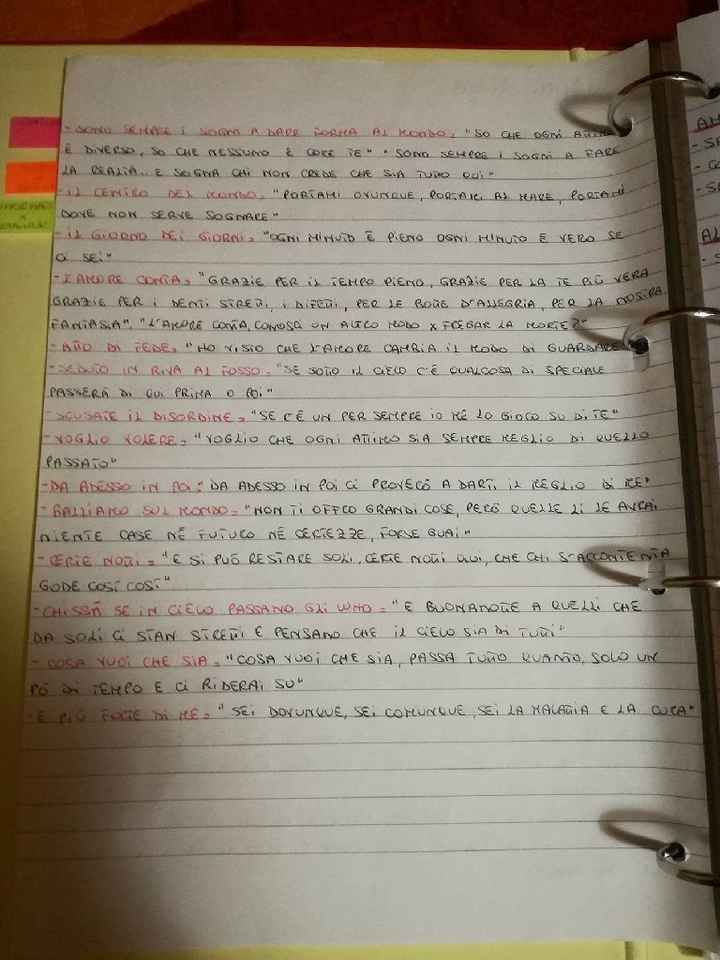 - SONO SEMPRE I SOGNI A DARE FORMA AL MONDO = "SO CHE OGNI ATTIMO
È DIVERSO, SO CHE NESSUNO È COME TE" " SONO SEMPRE I SOGNI A FARE
LA REALTÀ.. E SOGNA CHI NON CREDE CHE SIA TUTTO QUI"
- IL CENTRO DEL MONDO = "PORTAMI OVUNQUE, PORTAMI AL MARE, PORTAMI
DOVE NON SERVE SOGNARE"
- IL GIORNO DEI GIORNI = "OGNI MINUTO È PIENO OGNI MINUTO È VERO SE
CI SEI"
- L'AMORE CONTA = "GRAZIE PER IL TEMPO PIENO, GRAZIE PER LA TE PIÙ VERA
GRAZIE PER I DENTI STRETTI, I DIFETTI, PER LE BOTTE D'ALLEGRIA, PER LA NOSTRA
FANTASIA", "L'AMORE CONTA, CONOSCI UN ALTRO MODO X FREGAR LA MORTE?"
- ATTO DI FEDE = "HO VISTO CHE L'AMORE CAMBIA IL MODO DI GUARDARE"
- SEDUTO IN RIVA AL FOSSO = "SE SOTTO IL CIELO C'È QUALCOSA DI SPECIALE
PASSERÀ DI QUI PRIMA O POI"
- SCUSATE IL DISORDINE = "SE C'È UN PER SEMPRE IO ME LO GIOCO SU DI TE"
- VOGLIO VOLERE = "VOGLIO CHE OGNI ATTIMO SIA SEMPRE MEGLIO DI QUELLO
PASSATO"
- DA ADESSO IN POI = "DA ADESSO IN POI CI PROVERÒ A DARTI IL MEGLIO DI ME"
- BALLIAMO SUL MONDO = "NON TI OFFRO GRANDI COSE, PERÒ QUELLE LÌ LE AVRAI
NIENTE CASE NÉ FUTURO NÉ CERTEZZE, FORSE GUAI"
- CERTE NOTTI = "E SI PUÒ RESTARE SOLI, CERTE NOTTI QUI, CHE CHI S'ACCONTENTA
GODE COSÌ COSÌ"
- CHISSÀ SE IN CIELO PASSANO GLI WHO = "E BUONANOTTE A QUELLI CHE
DA SOLI CI STAN STRETTI E PENSANO CHE IL CIELO SIA DI TUTTI"
- COSA VUOI CHE SIA = "COSA VUOI CHE SIA, PASSA TUTTO QUANTO, SOLO UN
PÒ DI TEMPO E CI RIDERAI SU"
- È PIÙ FORTE DI ME = "SEI DOVUNQUE, SEI COMUNQUE, SEI LA MALATTIA E LA CURA"